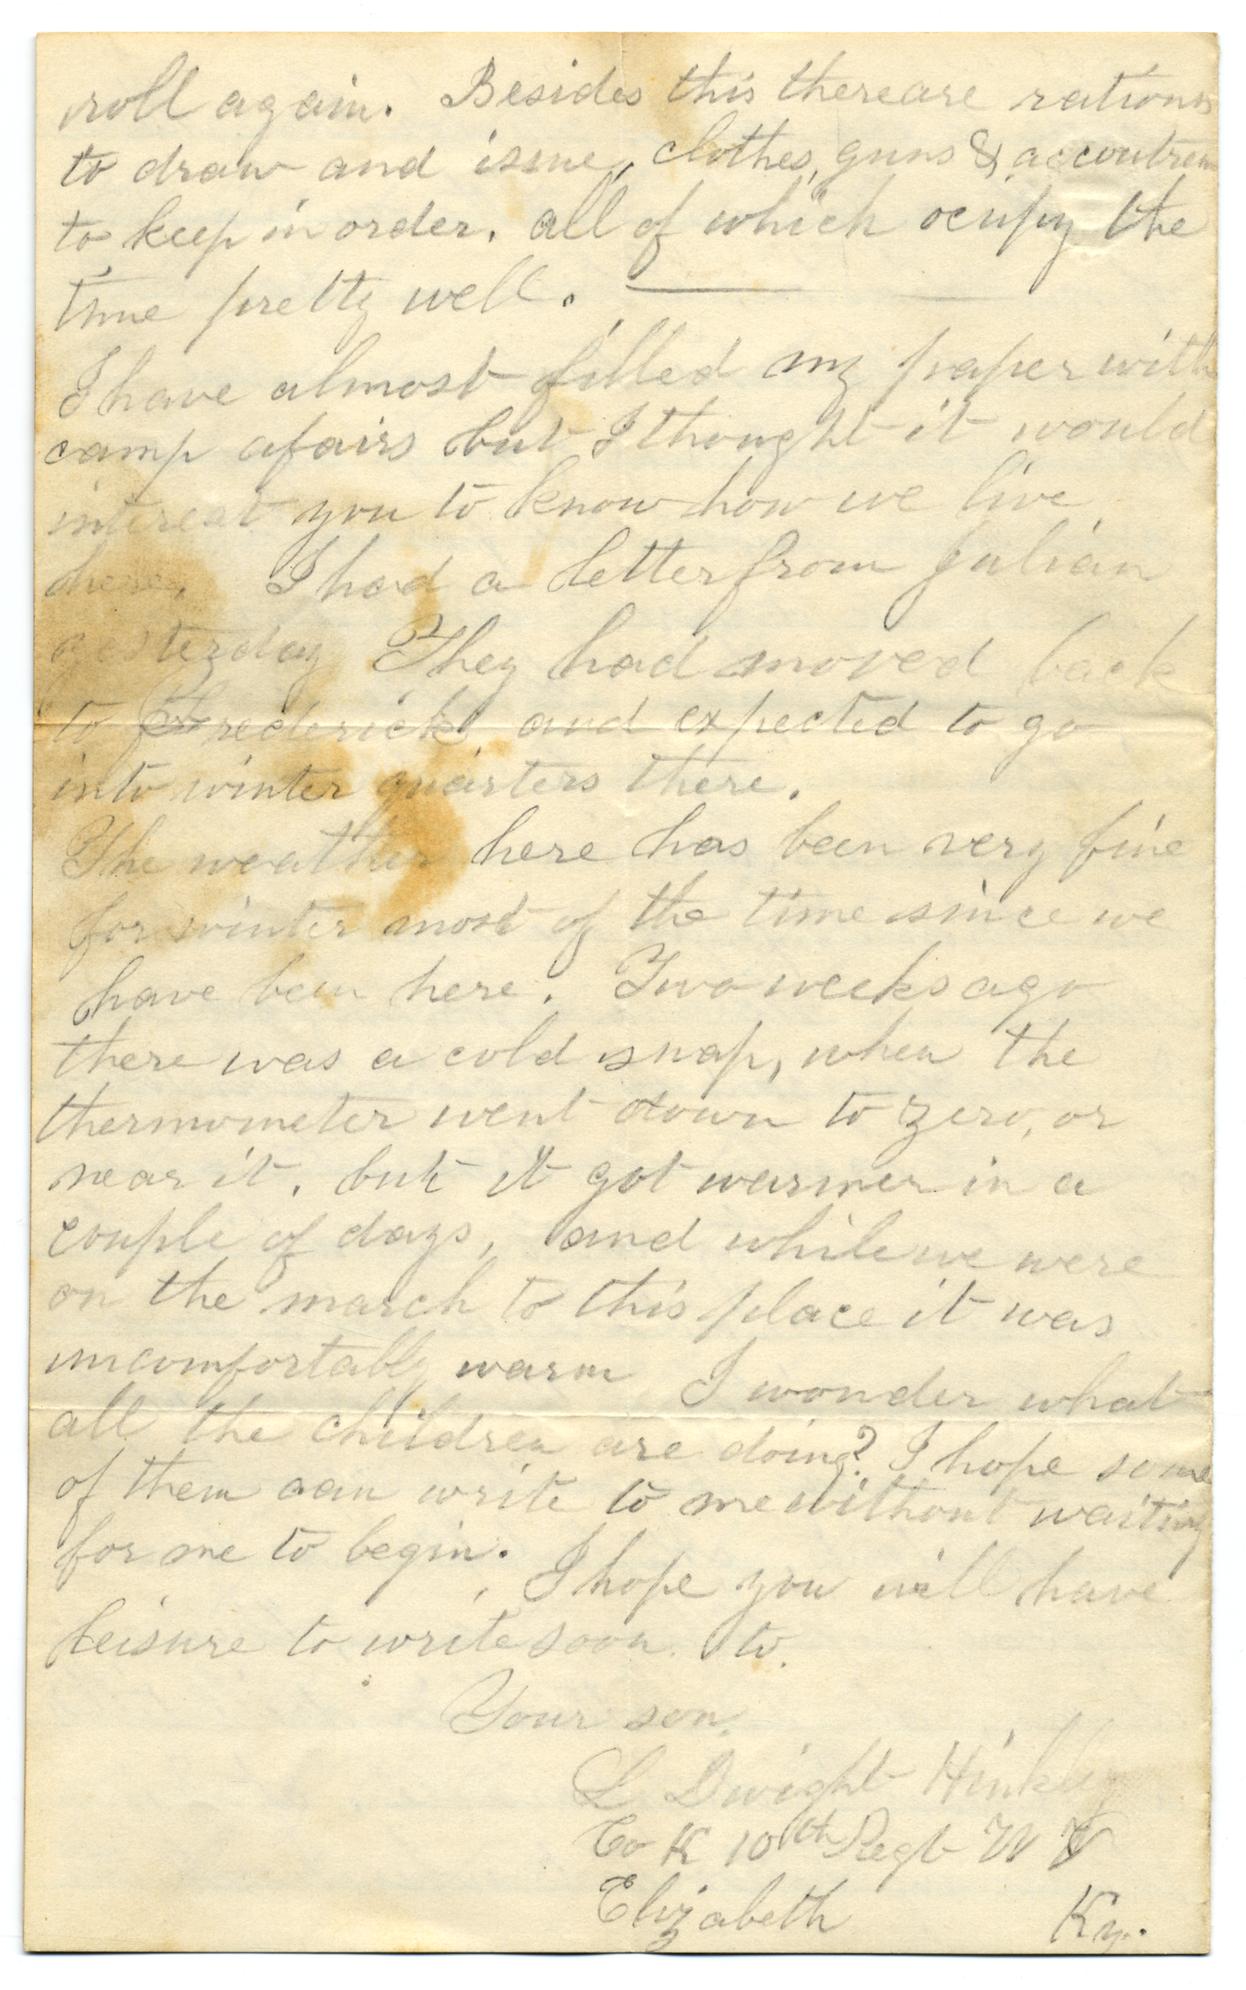 roll again. Besides this there are rations
to draw and issue, clothes, guns & accoutrem
to keep in order. all of which ocupy the
time pretty well.
I have almost filled my paper with
camp afairs but I thought it would
interest you to know how we live
here. I had a letter from Julian
yesterday They had moved back
to Frederick, and expected to go
into winter quarters there.
The weather here has been very fine
for winter most of the time since we
have been here. Two weeks ago
there was a cold snap, when the
thermometer went down to zero, or
near it. but it got warmer in a
couple of days, and while we were
on the march to this place it was
uncomfortably warm I wonder what
all the children are doing? I hope some
of them can write to me without waiting
for me to begin. I hope you will have
leisure to write soon to.
Your son.
L Dwight Hinkley
Co K 10th Regt W V
Elizabeth Ky.